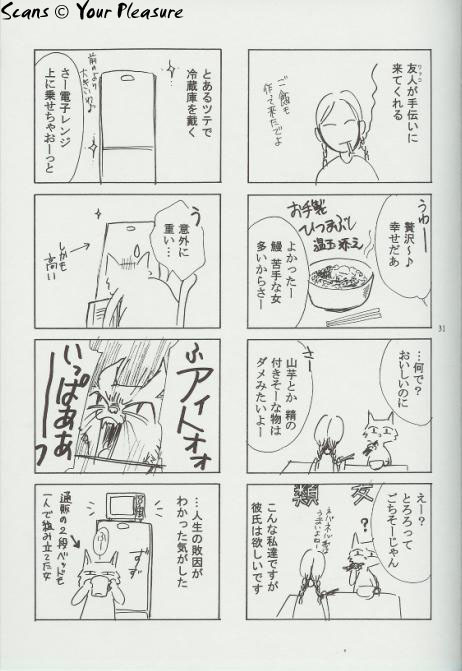 Scans © Your Pleasure
友人が手伝いに
ワッコ
来てくれる
ご飯も
作って来たでよ
うわー
贅沢～♪
幸せだあ
お手製
ひつまぶし
温玉添え
よかったー
鰻 苦手な女
多いからさー
…何で？
おいしいのに
さー
山芋とか 精の
付きそーな物は
ダメみたいよー
えー？
とろろって
ごちそーじゃん
？
ネバネバ
うまいよねー
こんな私達ですが
彼氏は欲しいです
31
とあるツテで
冷蔵庫を戴く
前のより
大きいわよ
さー電子レンジ
上に乗せちゃおーっと
う
意外に
重い…
しかも
高い
ふ
アイトォォ
いっぱああーつ
…人生の敗因が
わかった気がした
ふー
ずず
通販の2段ベッドも
一人で組み立てた女